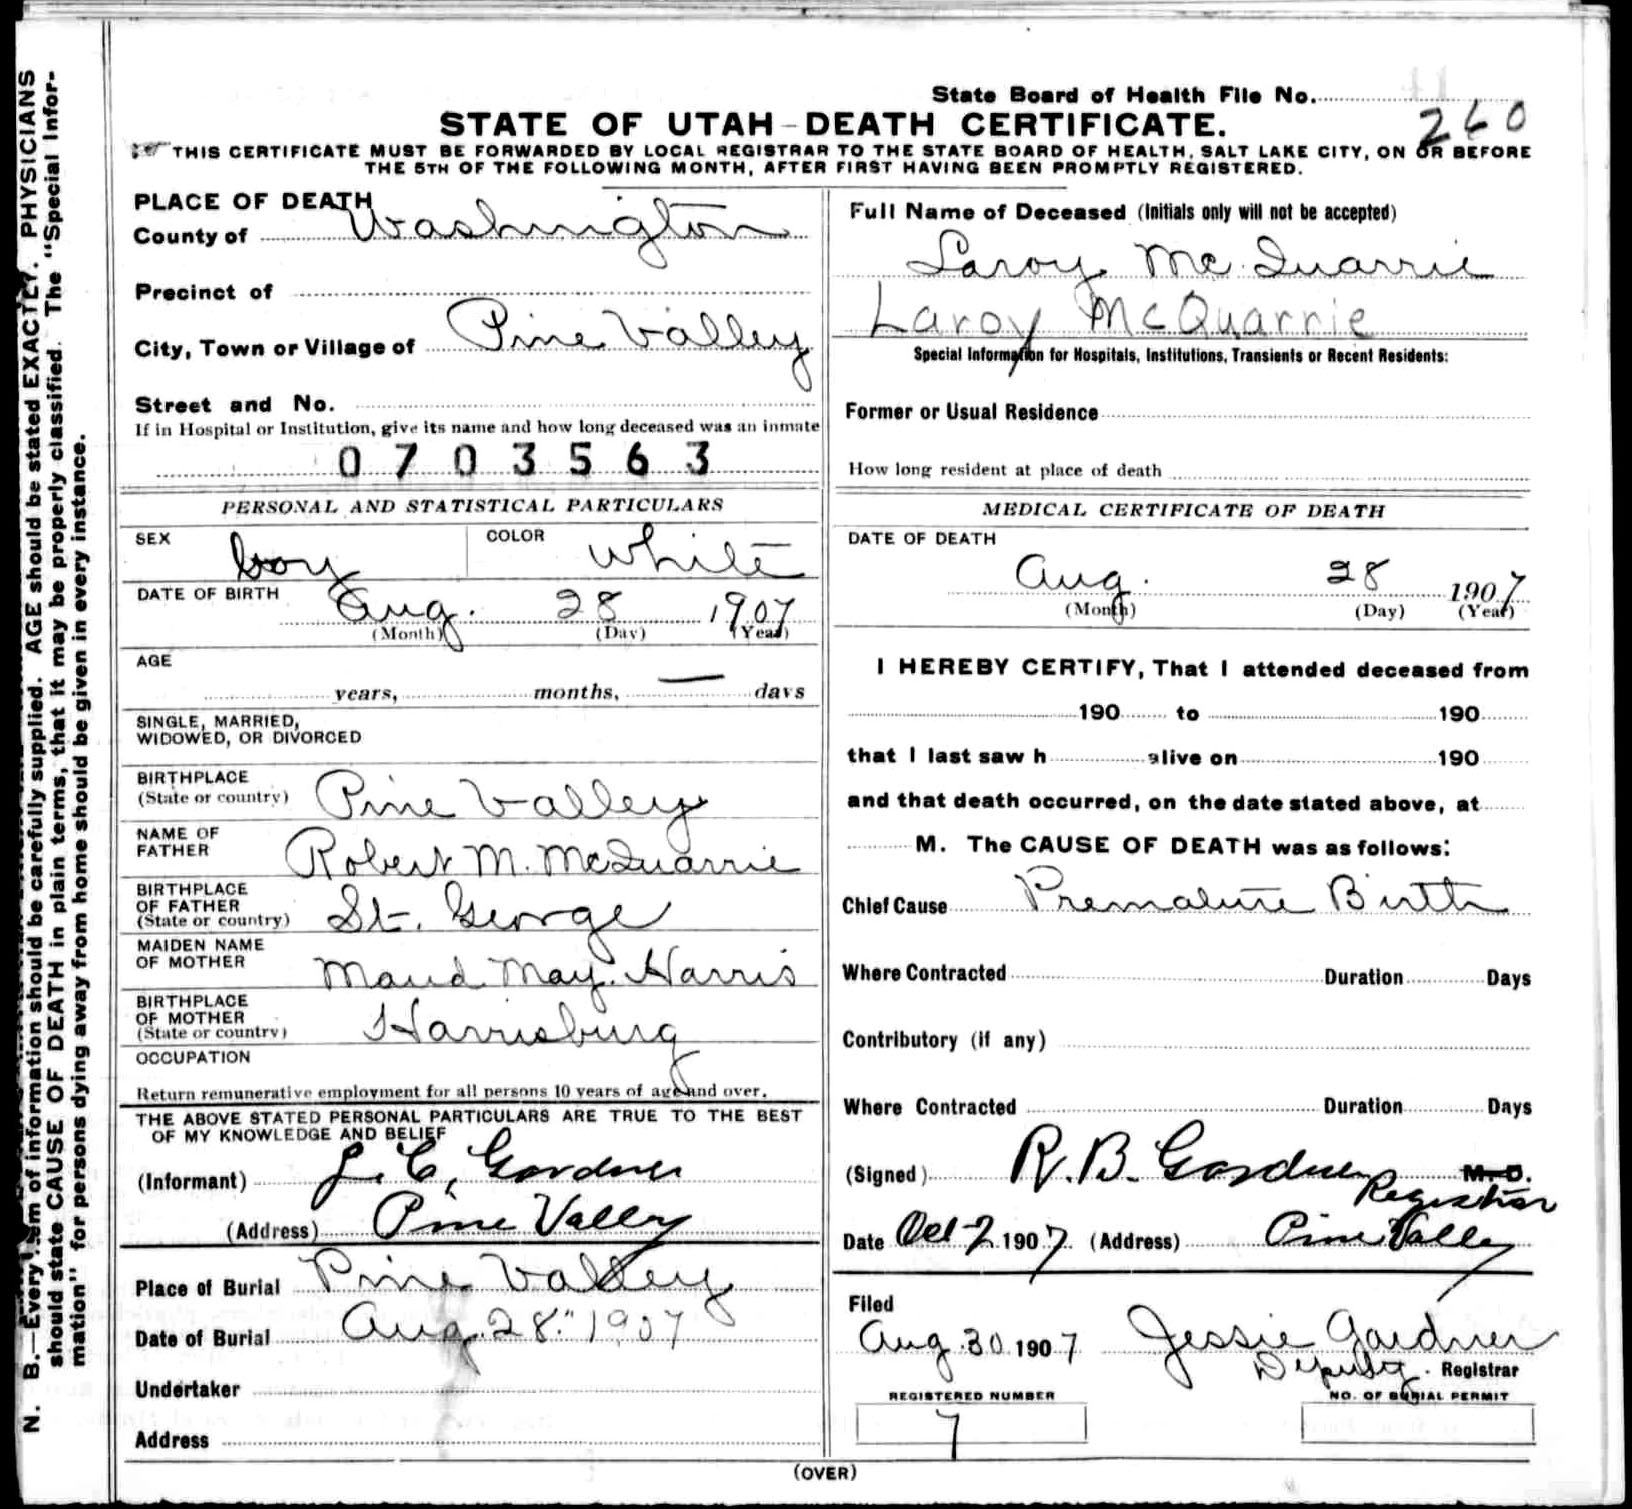 N. B.—Every item of information should be carefully supplied. AGE should be stated EXACTLY. PHYSICIANS
should state CAUSE OF DEATH in plain terms, that it may be properly classified. The "Special Infor-
mation" for persons dying away from home should be given in every instance.
State Board of Health File No.
260
STATE OF UTAH—DEATH CERTIFICATE.
THIS CERTIFICATE MUST BE FORWARDED BY LOCAL REGISTRAR TO THE STATE BOARD OF HEALTH, SALT LAKE CITY, ON OR BEFORE
THE 5TH OF THE FOLLOWING MONTH, AFTER FIRST HAVING BEEN PROMPTLY REGISTERED.
PLACE OF DEATH
County of Washington
Precinct of
City, Town or Village of Pine Valley
Street and No.
If in Hospital or Institution, give its name and how long deceased was an inmate
0703563
PERSONAL AND STATISTICAL PARTICULARS
SEX boy COLOR White
DATE OF BIRTH Aug. 28 1907
(Month) (Day) (Year)
AGE
years, months, — days
SINGLE, MARRIED,
WIDOWED, OR DIVORCED
BIRTHPLACE
(State or country) Pine Valley
NAME OF
FATHER Robert M. McQuarrie
BIRTHPLACE
OF FATHER
(State or country) St. George
MAIDEN NAME
OF MOTHER Maud May Harris
BIRTHPLACE
OF MOTHER
(State or country) Harrisburg
OCCUPATION
Return remunerative employment for all persons 10 years of age and over.
THE ABOVE STATED PERSONAL PARTICULARS ARE TRUE TO THE BEST
OF MY KNOWLEDGE AND BELIEF
(Informant) J. C. Gardner
(Address) Pine Valley
Place of Burial Pine Valley
Date of Burial Aug. 28" 1907
Undertaker
Address
Full Name of Deceased (Initials only will not be accepted)
Laroy McQuarrie
Laroy McQuarrie
Special Information for Hospitals, Institutions, Transients or Recent Residents:
Former or Usual Residence
How long resident at place of death
MEDICAL CERTIFICATE OF DEATH
DATE OF DEATH
Aug. 28 1907
(Month) (Day) (Year)
I HEREBY CERTIFY, That I attended deceased from
190 to 190
that I last saw h alive on 190
and that death occurred, on the date stated above, at
M. The CAUSE OF DEATH was as follows:
Chief Cause Premature Birth
Where Contracted Duration Days
Contributory (if any)
Where Contracted Duration Days
(Signed) R. B. Gardner M. D.
Registrar
Date Oct 2 1907 (Address) Pine Valley
Filed
Aug. 30 1907 Jessie Gardner
Deputy. Registrar
REGISTERED NUMBER NO. OF BURIAL PERMIT
7
(OVER)